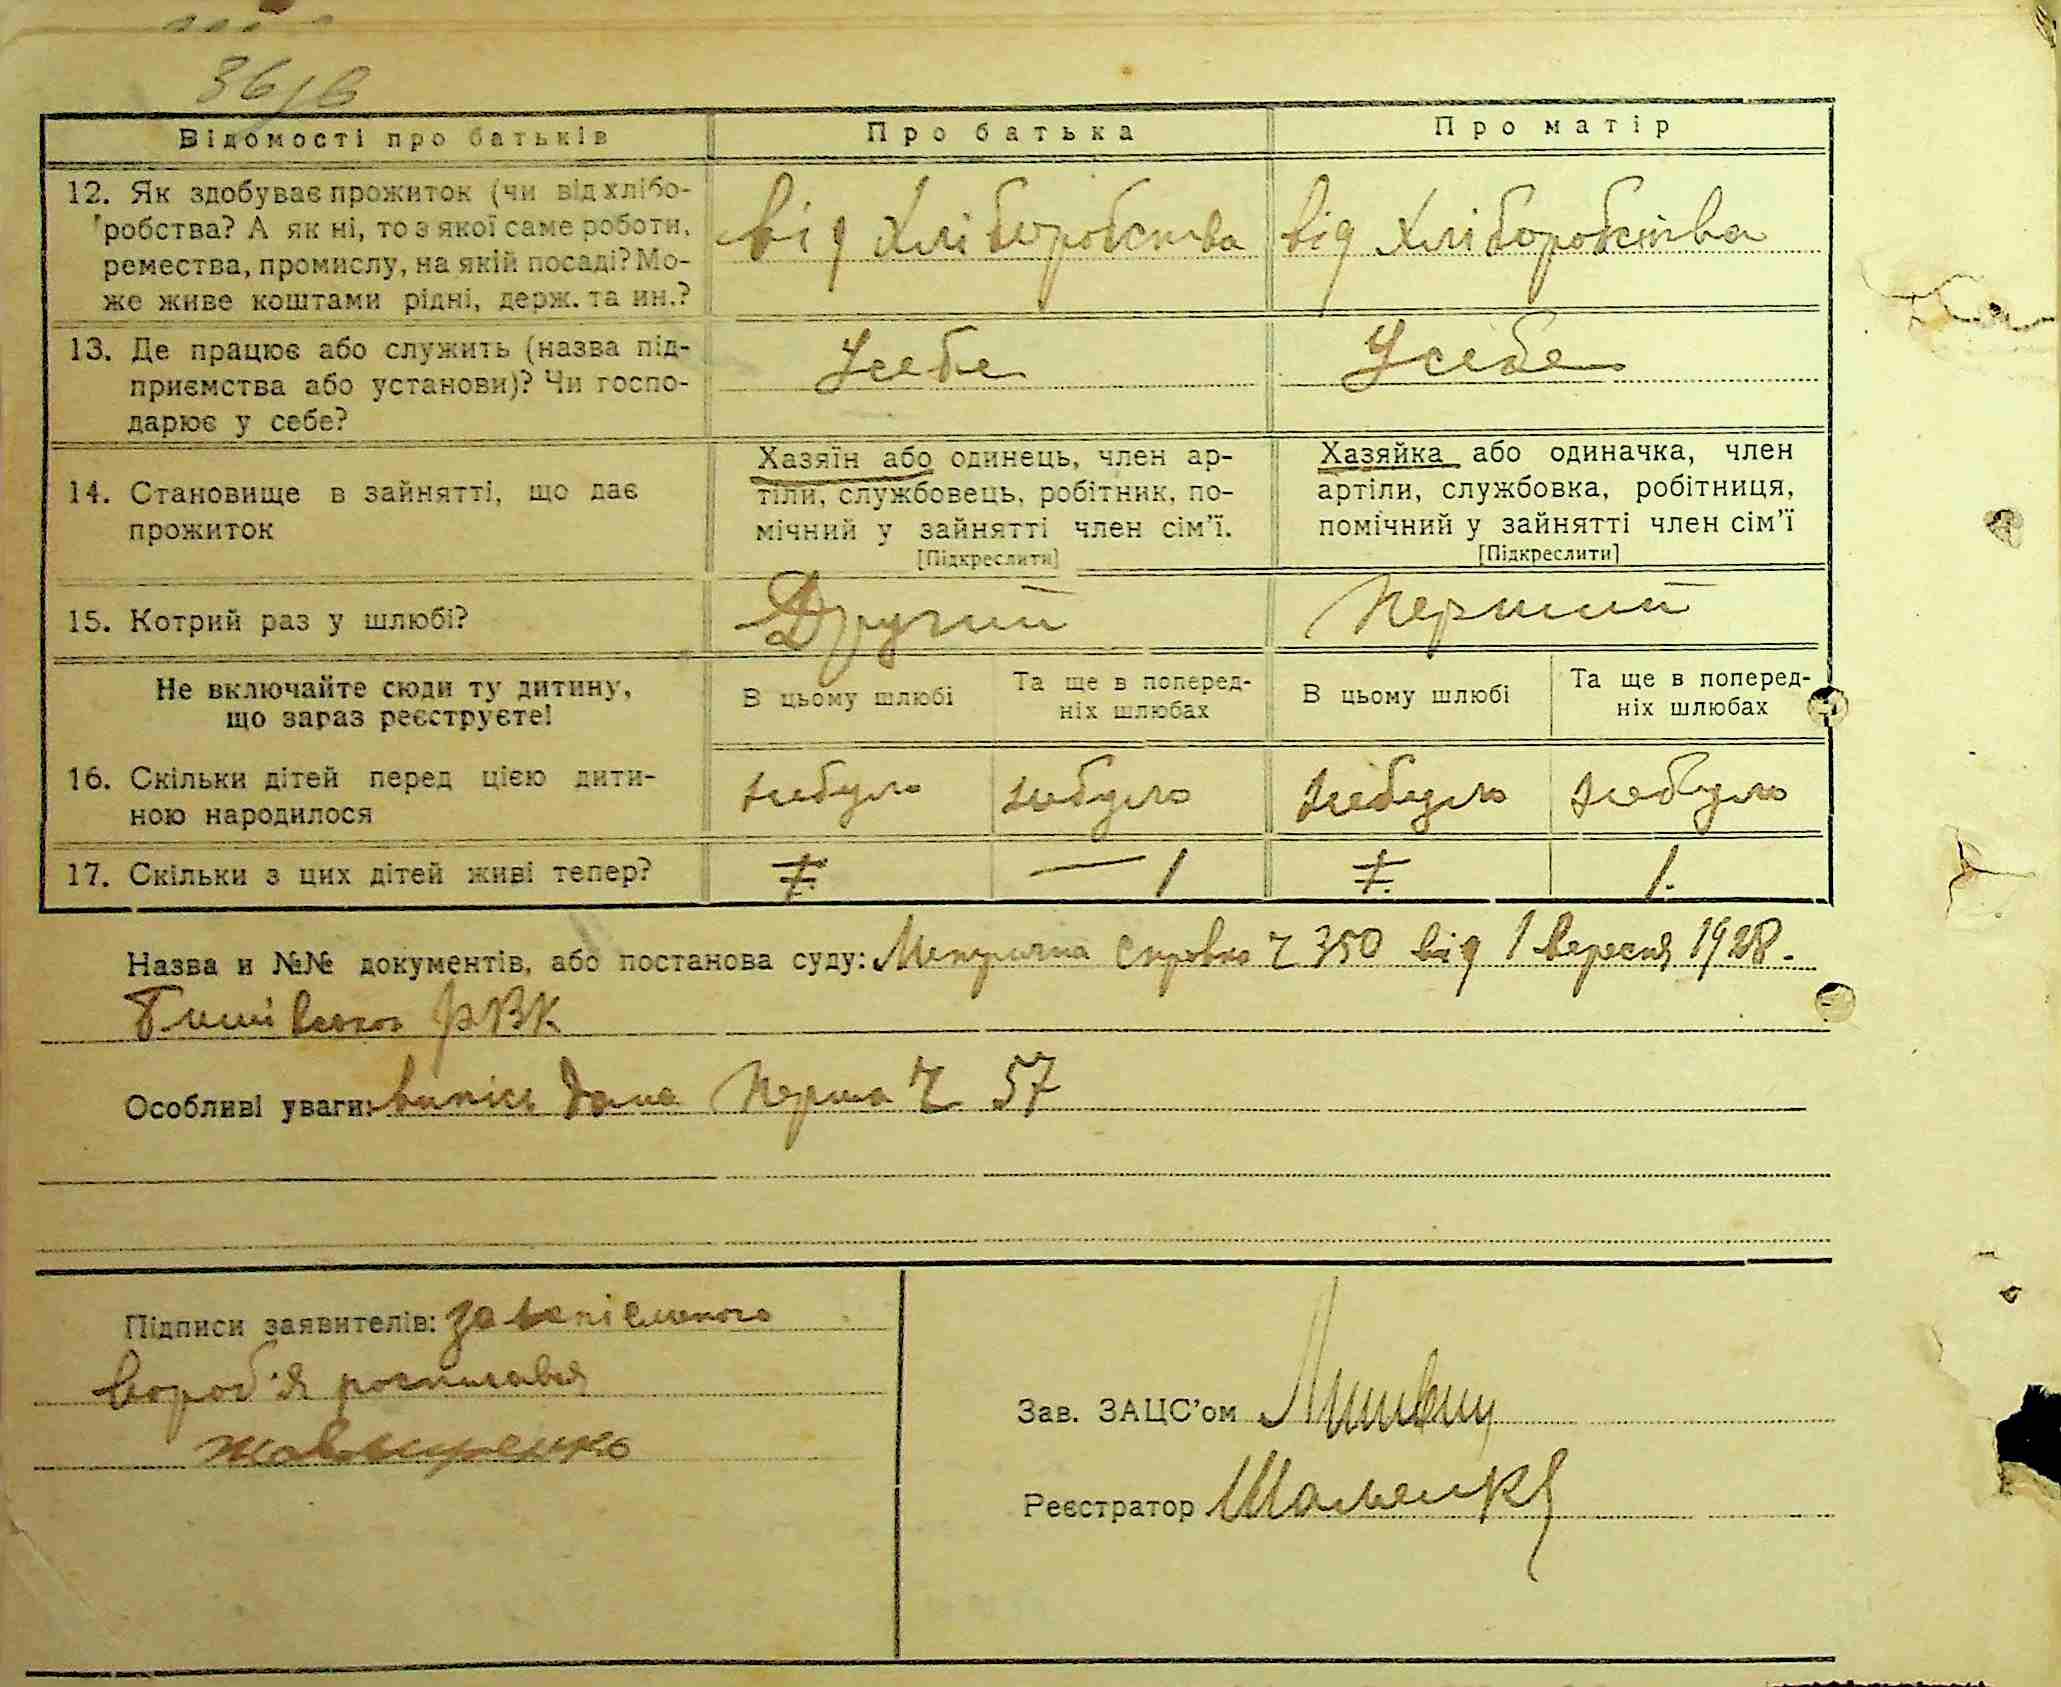 36/в
Відомості про батьків
Про батька
Про матір
12. Як здобуває прожиток (чи від хлібо-
робства? А як ні, то з якої саме роботи,
ремества, промислу, на якій посаді? Мо-
же живе коштами рідні, держ. та ин.?
від Хліборобства
від Хліборобства
13. Де працює або служить (назва під-
приємства або установи)? Чи госпо-
дарює у себе?
Усебе
Усебе
14. Становище в зайнятті, що дає
прожиток
Хазяїн або одинець, член ар-
тіли, службовець, робітник, по-
мічний у зайнятті член сім'ї.
[Підкреслити]
Хазяйка або одиначка, член
артіли, службовка, робітниця,
помічний у зайнятті член сім'ї
[Підкреслити]
15. Котрий раз у шлюбі?
Другий
Перший
Не включайте сюди ту дитину,
що зараз реєструєте!
В цьому шлюбі
Та ще в поперед-
ніх шлюбах
В цьому шлюбі
Та ще в поперед-
ніх шлюбах
16. Скільки дітей перед цією дити-
ною народилося
небуло
небуло
небуло
небуло
17. Скільки з цих дітей живі тепер?
— 1
1.
Назва и №№ документів, або постанова суду: Метрична Справка Ч 350 від 1 вересня 1928.
РВК
Особливі уваги: випись дана Перша Ч 57
Підписи заявителів: за
вороб'я росписався
Зав. ЗАЦС'ом
Реєстратор